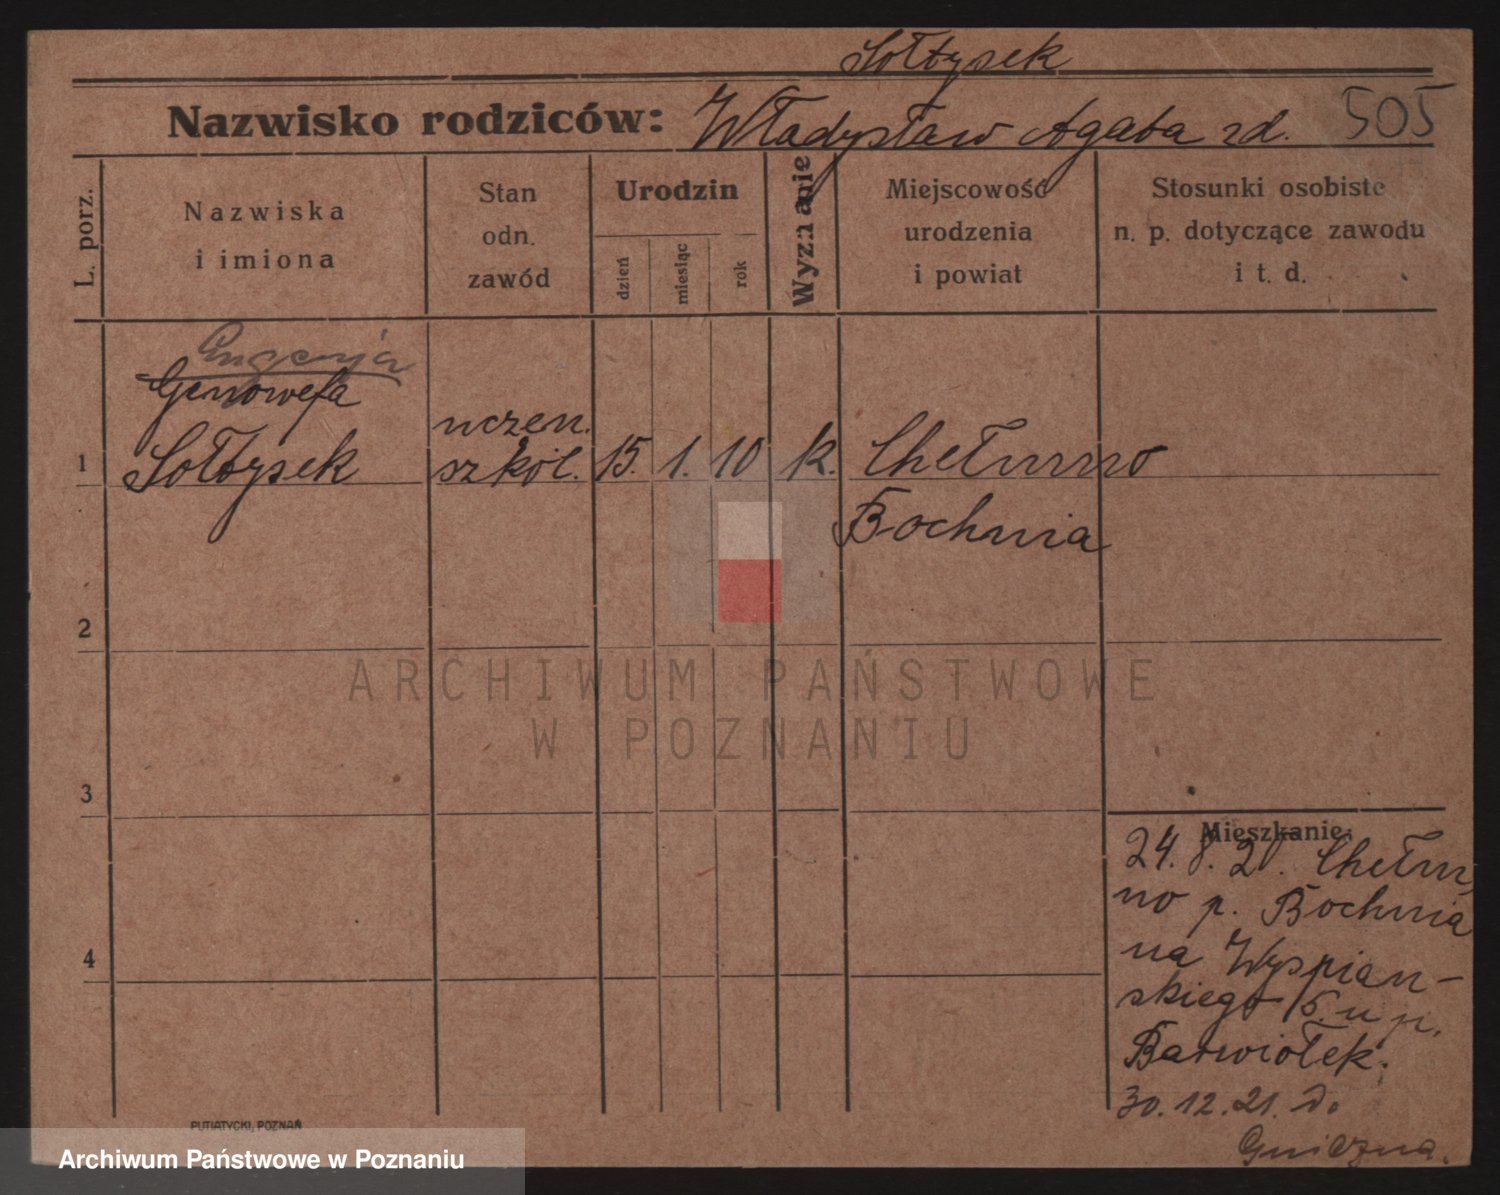 Sołtysek
Nazwisko rodziców: Władysław Agata zd. 505
L. porz.
Nazwiska
i imiona
Stan
odn.
zawód
Urodzin
dzień
miesiąc
rok
Wyznanie
Miejscowość
urodzenia
i powiat
Stosunki osobiste
n. p. dotyczące zawodu
i t. d.
Eugenja
Genowefa
1 Sołtysek uczen. szkol. 15. 1. 10 k. Chełmno
Bochnia
2
ARCHIWUM PAŃSTWOWE
W POZNANIU
3
Mieszkanie:
24. 8. 21. Chełm
no p. Bochnia
na Wyspian-
skiego 15. u p.
Barwiołek.
4
30. 12. 21. do
Gniezna.
PUTIATYCKI, POZNAŃ
Archiwum Państwowe w Poznaniu